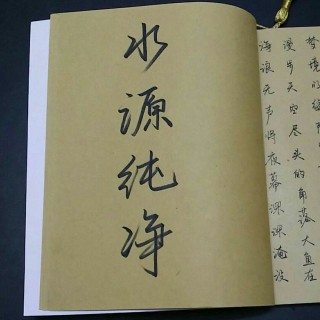 水源纯净
海浪无声将夜幕深深淹没
漫步天空尽头的角落大鱼在
梦境的缝